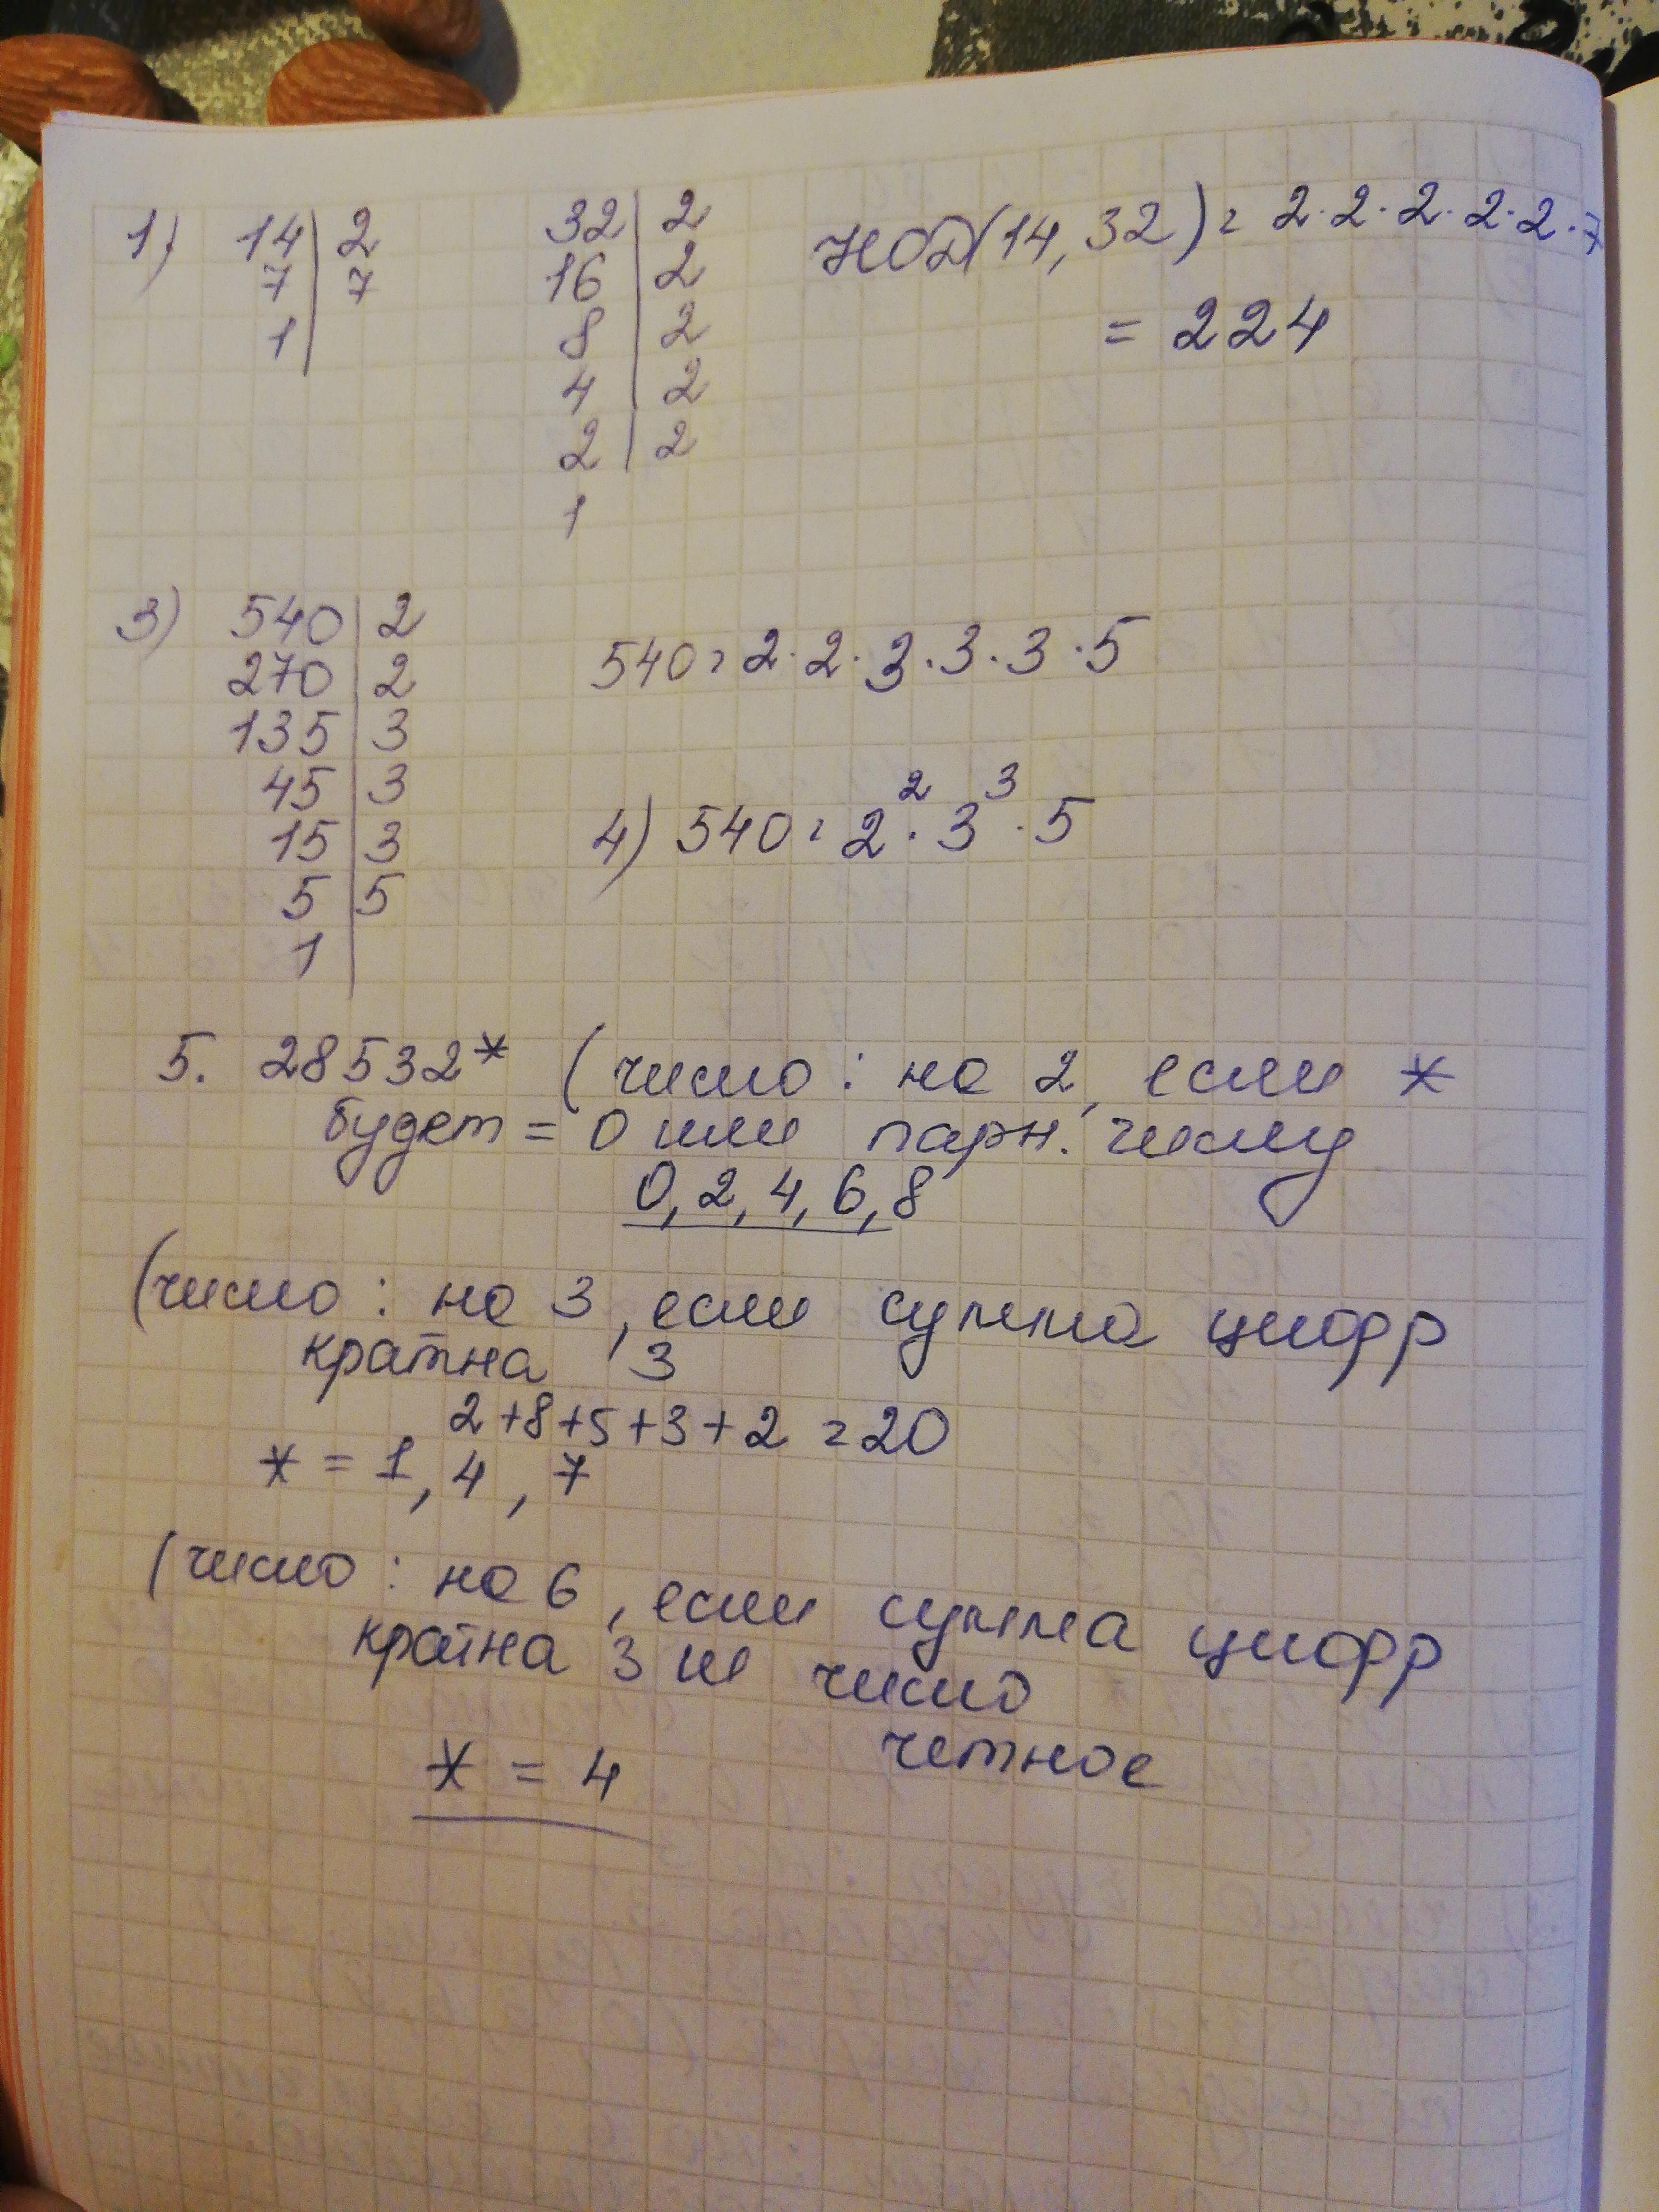 1) 14 | 2 32 | 2 НОД(14, 32) = 2·2·2·2·2·7
7 | 7 16 | 2
1 8 | 2 = 224
4 | 2
2 | 2
1
3) 540 | 2
270 | 2 540 = 2·2·3·3·3·5
135 | 3
45 | 3
15 | 3 4) 540 = 2²·3³·5
5 | 5
1
5. 28532* (число : на 2, если *
будет = 0 или парн. числу
0, 2, 4, 6, 8
(число : на 3, если сумма цифр
кратна 3
2+8+5+3+2 = 20
* = 1, 4, 7
(число : на 6, если сумма цифр
кратна 3 и число
четное
* = 4